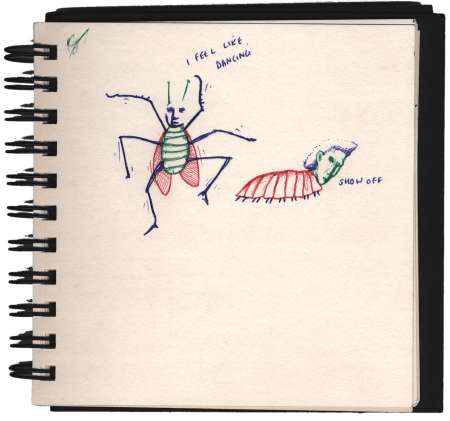 I FEEL LIKE
DANCING.
SHOW OFF